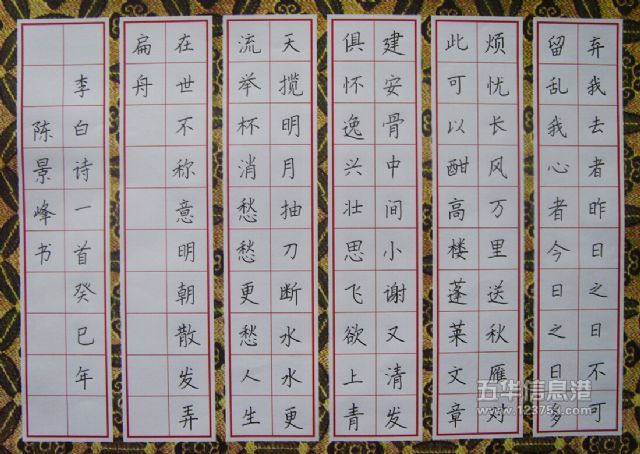 弃我去者昨日之日不可
留乱我心者今日之日多
烦忧长风万里送秋雁对
此可以酣高楼蓬莱文章
建安骨中间小谢又清发
俱怀逸兴壮思飞欲上青
天揽明月抽刀断水水更
流举杯消愁愁更愁人生
在世不称意明朝散发弄
扁舟
李白诗一首癸巳年
陈景峰书
五华信息港